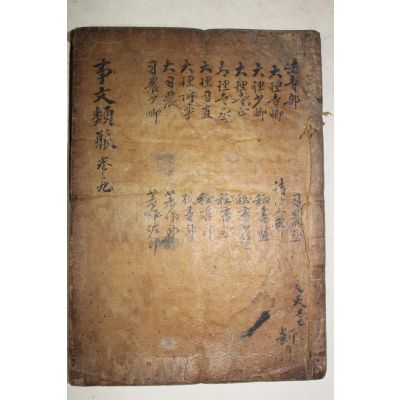 諸寺部
大理寺卿
大理少卿
大理寺正
大理寺丞
大理司直
大理評事
大司農
司農少卿
司農丞
秘書監
秘書少監
秘書丞
秘書郎
校書郎
著作郎
著作佐郎
事文類聚 卷之九